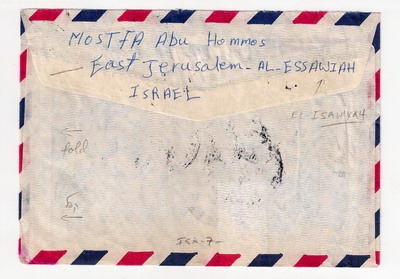 MOSTFA Abu Hommos
East Jerusalem-AL-ESSAWIAH
ISRAEL
EL-ISAWIYAH
fold
ISR-7-